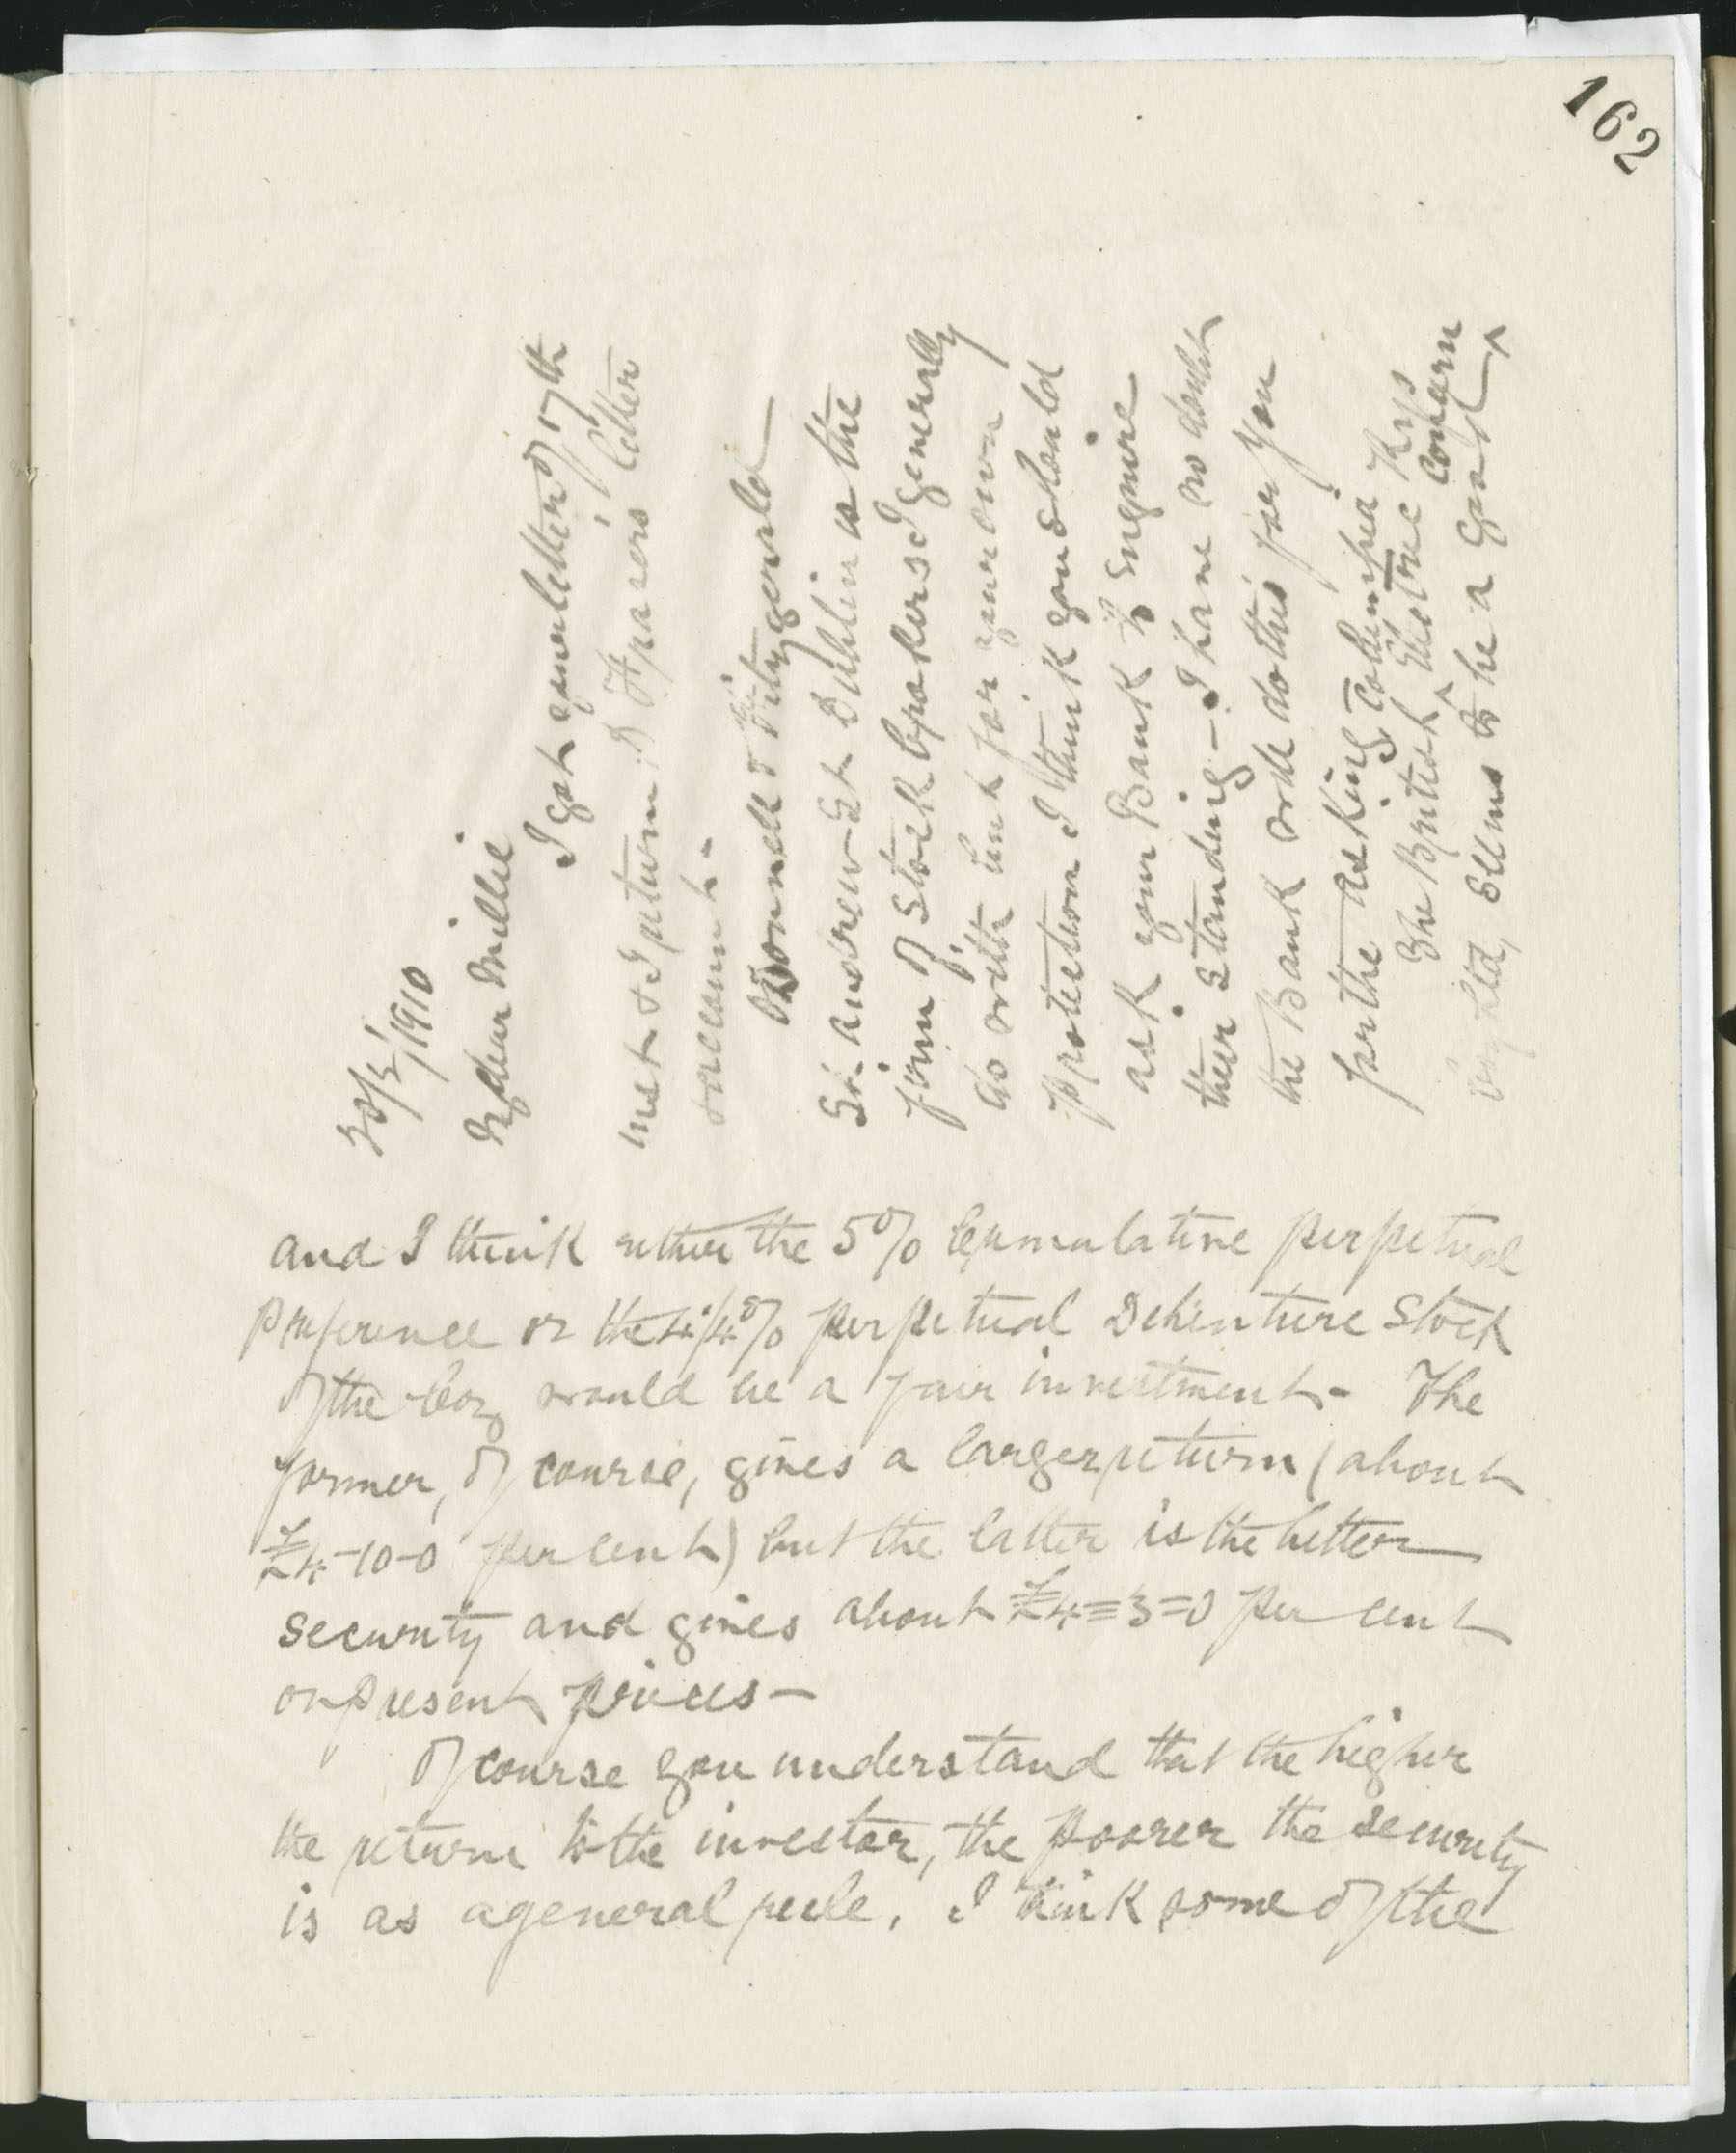 162
30/3/1910
My dear Millie
I got your letter of 17th
inst & I return D Fraser's letter
& account.
O'Donnell & Fitzgerald
St. Andrew St Dublin is the
firm of Stock brokers I generally
do with but for your own
protection I think you should
ask your Bank to enquire
their standing – I have no doubt
the Bank will do this for you
for the asking
The British Columbia Electric Rys
Coy Ltd, seems to be a good concern
and I think either the 5% Cumulative perpetual
preference or the 4 1/4% perpetual Debenture Stock
of the Coy would be a fair investment - The
former, of course, gives a larger return (about
£4-10-0 per cent) but the latter is the better
security and gives about £4=3=0 per cent
on present prices –
Of course you understand that the higher
the return to the investor, the poorer the security
is as a general rule. I think some of the